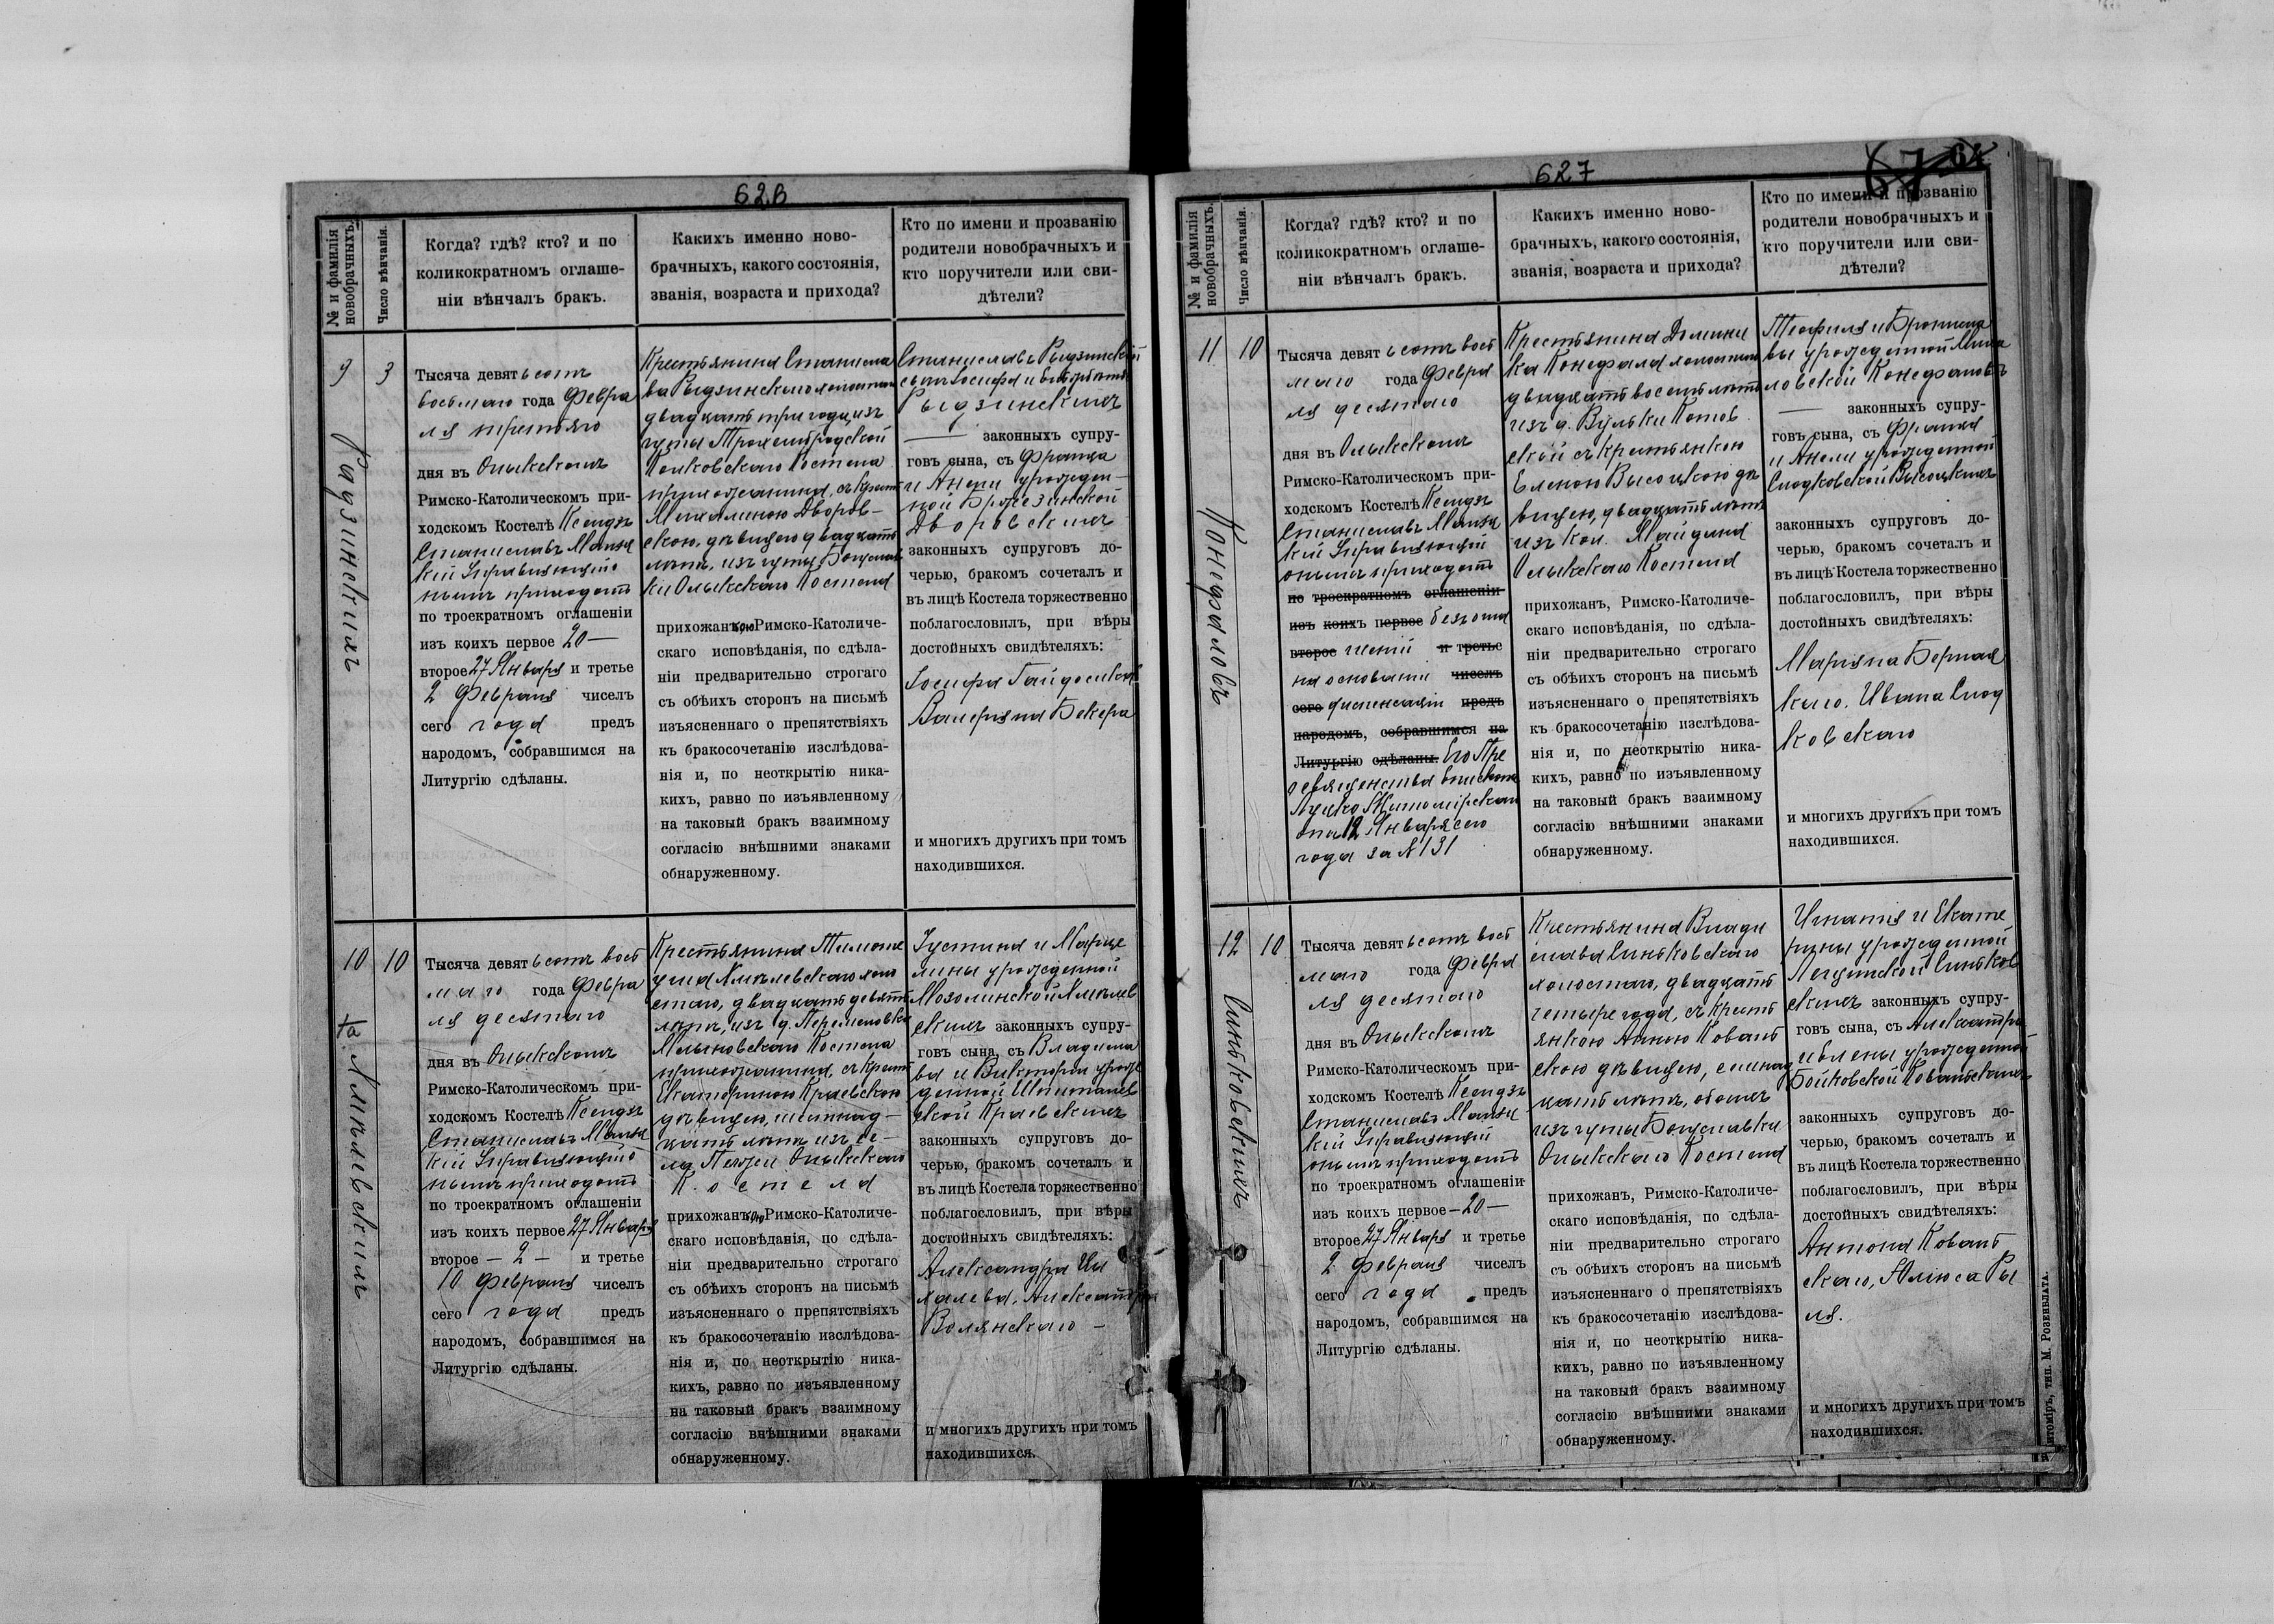 626
№ и фамилія новобрачныхъ.
Число вѣнчанія.
Когда? гдѣ? кто? и по
коликократномъ оглаше-
ніи вѣнчалъ бракъ.
Какихъ именно ново-
брачныхъ, какого состоянія,
званія, возраста и прихода?
Кто по имени и прозванію
родители новобрачныхъ и
кто поручители или сви-
дѣтели?
9
3
Тысяча девятьсотъ
восьмаго года Февра
ля третьяго
дня въ Олыкскомъ
Римско-Католическомъ при-
ходскомъ Костелѣ Ксендзъ
Станиславъ
кій Управляющій о
нымъ приходомъ
по троекратномъ оглашеніи
изъ коихъ первое 20 —
второе 27 Января и третье
2 Февраля чиселъ
сего года предъ
народомъ, собравшимся на
Литургію сдѣланы.
Крестьянина Станисла
ва Рыдзинскаго холостаго
двадцать три года, изъ
гуты Трохимбродской
Колковскаго Костела
прихожанина, съ Крест
Михалиною Дворов-
скою, дѣвицею двадцать
лѣтъ, изъ гуты Богуслав
ки Олыкскаго Костела
прихожан Римско-Католиче-
скаго исповѣданія, по сдѣла-
ніи предварительно строгаго
съ обѣихъ сторонъ на письмѣ
изъясненнаго о препятствіяхъ
къ бракосочетанію изслѣдова-
нія и, по неоткрытію ника-
кихъ, равно по изъявленному
на таковый бракъ взаимному
согласію внѣшними знаками
обнаруженному.
Станиславъ Рыдзинскій
сынъ Іосифа и
Рыдзинскихъ
— законныхъ супру-
говъ сына, съ Франца
и Анели урожден-
ной Бржезинской
Дворовскихъ
законныхъ супруговъ до-
черью, бракомъ сочеталъ и
въ лицѣ Костела торжественно
поблагословилъ, при вѣры
достойныхъ свидѣтеляхъ:
Іосифа
Валеріяна Бекера
и многихъ другихъ при томъ
находившихся.
10
10
Тысяча девятьсотъ вось
маго года Февра
ля десятаго
дня въ Олыкскомъ
Римско-Католическомъ при-
ходскомъ Костелѣ Ксендзъ
Станиславъ
кій Управляющій о
нымъ приходомъ
по троекратномъ оглашеніи
изъ коихъ первое 27 Января
второе — 2 — и третье
10 Февраля чиселъ
сего года предъ
народомъ, собравшимся на
Литургію сдѣланы.
Крестьянина Тимоше
холо
стаго, двадцать девять
лѣтъ, изъ д.
Костела
прихожанина, съ Крест
Екатериною Краевскою
дѣвицею, шестнад-
цать лѣтъ изъ се-
ла Олыкскаго
Костела
прихожан Римско-Католиче-
скаго исповѣданія, по сдѣла-
ніи предварительно строгаго
съ обѣихъ сторонъ на письмѣ
изъясненнаго о препятствіяхъ
къ бракосочетанію изслѣдова-
нія и, по неоткрытію ника-
кихъ, равно по изъявленному
на таковый бракъ взаимному
согласію внѣшними знаками
обнаруженному.
Іустина и Марце
лины урожденной
скихъ законныхъ супру-
говъ сына, съ Владисла
ва и Викторіи урож
денной
ской Краевскихъ
законныхъ супруговъ до-
черью, бракомъ сочеталъ и
въ лицѣ Костела торжественно
поблагословилъ, при вѣры
достойныхъ свидѣтеляхъ:
Александра
Александра
Волянскаго —
и многихъ другихъ при томъ
находившихся.
627
№ и фамилія новобрачныхъ.
Число вѣнчанія.
Когда? гдѣ? кто? и по
коликократномъ оглаше-
ніи вѣнчалъ бракъ.
Какихъ именно ново-
брачныхъ, какого состоянія,
званія, возраста и прихода?
Кто по имени и прозванію
родители новобрачныхъ и
кто поручители или сви-
дѣтели?
11
10
Конефаловъ
Тысяча девятьсотъ вось
маго года Февра
ля десятаго
дня въ Олыкскомъ
Римско-Католическомъ при-
ходскомъ Костелѣ Ксендзъ
Станиславъ
кій Управляющій
онымъ приходомъ
по троекратномъ оглашеніи
изъ коихъ первое безъ огла
второе шеній и третье
на основаніи чиселъ
сего диспенсаціи предъ
народомъ, собравшимся на
Литургію сдѣланы. Его Пре
освященства Епископа
Луцко Житомірскаго
12 Января сего
года за № 131
Крестьянина Домини
ка Конефала холостаго
двадцать восемь лѣтъ
изъ д. Вульки Котов
ской съ Крестьянкою
Еленою Высоцкою дѣ
вицею, двадцать лѣтъ
изъ кол. Майдана
Олыкскаго Костела
прихожан, Римско-Католиче-
скаго исповѣданія, по сдѣла-
ніи предварительно строгаго
съ обѣихъ сторонъ на письмѣ
изъясненнаго о препятствіяхъ
къ бракосочетанію изслѣдова-
нія и, по неоткрытію ника-
кихъ, равно по изъявленному
на таковый бракъ взаимному
согласію внѣшними знаками
обнаруженному.
Теофиля и Бронисла
вы урожденной Миха
ловской Конефаловъ
— законныхъ супру-
говъ сына, съ Франца
и Анели урожденной
Сладковской Высоцкихъ
законныхъ супруговъ до-
черью, бракомъ сочеталъ и
въ лицѣ Костела торжественно
поблагословилъ, при вѣры
достойныхъ свидѣтеляхъ:
Маріяна Бернац
каго, Ивана Слод
ковскаго
и многихъ другихъ при томъ
находившихся.
12
10
Синьковскихъ
Тысяча девятьсотъ вось
маго года Февра
ля десятаго
дня въ Олыкскомъ
Римско-Католическомъ при-
ходскомъ Костелѣ Ксендзъ
Станиславъ
кій Управляющій
онымъ приходомъ
по троекратномъ оглашеніи
изъ коихъ первое — 20 —
второе 27 Января и третье
2 Февраля чиселъ
сего года предъ
народомъ, собравшимся на
Литургію сдѣланы.
Крестьянина Влади
слава Синьковскаго
холостаго, двадцать
четыре года, съ Кресть
янкою Анною Коваль
скою дѣвицею, семнад
цать лѣтъ, обоихъ
изъ гуты Богуславки
Олыкскаго Костела
прихожан, Римско-Католиче-
скаго исповѣданія, по сдѣла-
ніи предварительно строгаго
съ обѣихъ сторонъ на письмѣ
изъясненнаго о препятствіяхъ
къ бракосочетанію изслѣдова-
нія и, по неоткрытію ника-
кихъ, равно по изъявленному
на таковый бракъ взаимному
согласію внѣшними знаками
обнаруженному.
Игнатія и Екате
рины урожденной
Синьков
скихъ законныхъ супру-
говъ сына, съ Александра
и Елены урожденной
Бойковской Ковальскихъ
законныхъ супруговъ до-
черью, бракомъ сочеталъ и
въ лицѣ Костела торжественно
поблагословилъ, при вѣры
достойныхъ свидѣтеляхъ:
Антона Коваль
скаго, Юліюса Ры
ля.
и многихъ другихъ при томъ
находившихся.
Житоміръ, тип. М. Розенблата.